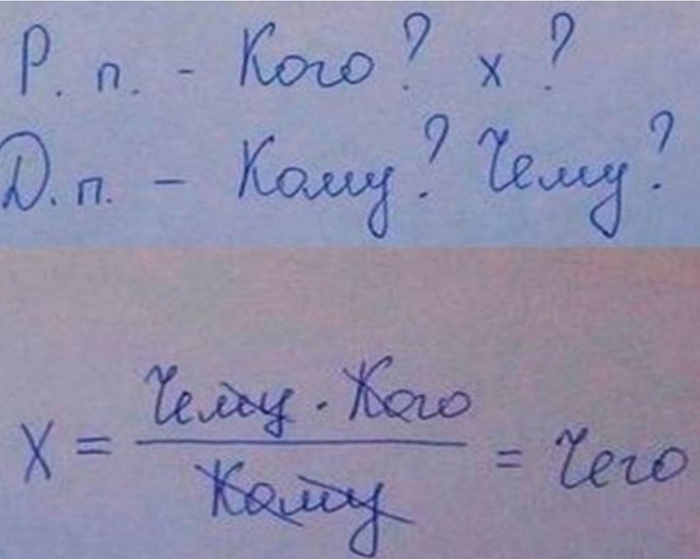 Р. п. - Кого? х?
Д. п. - Кому? Чему?
Х = Чему · Кого / Кому = Чего